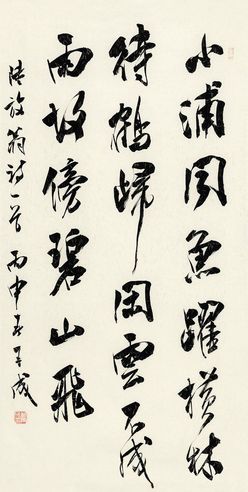 小浦闻鱼跃横林
待鹤归闲云不成
雨故傍碧山飞
陆放翁诗一首 丙申